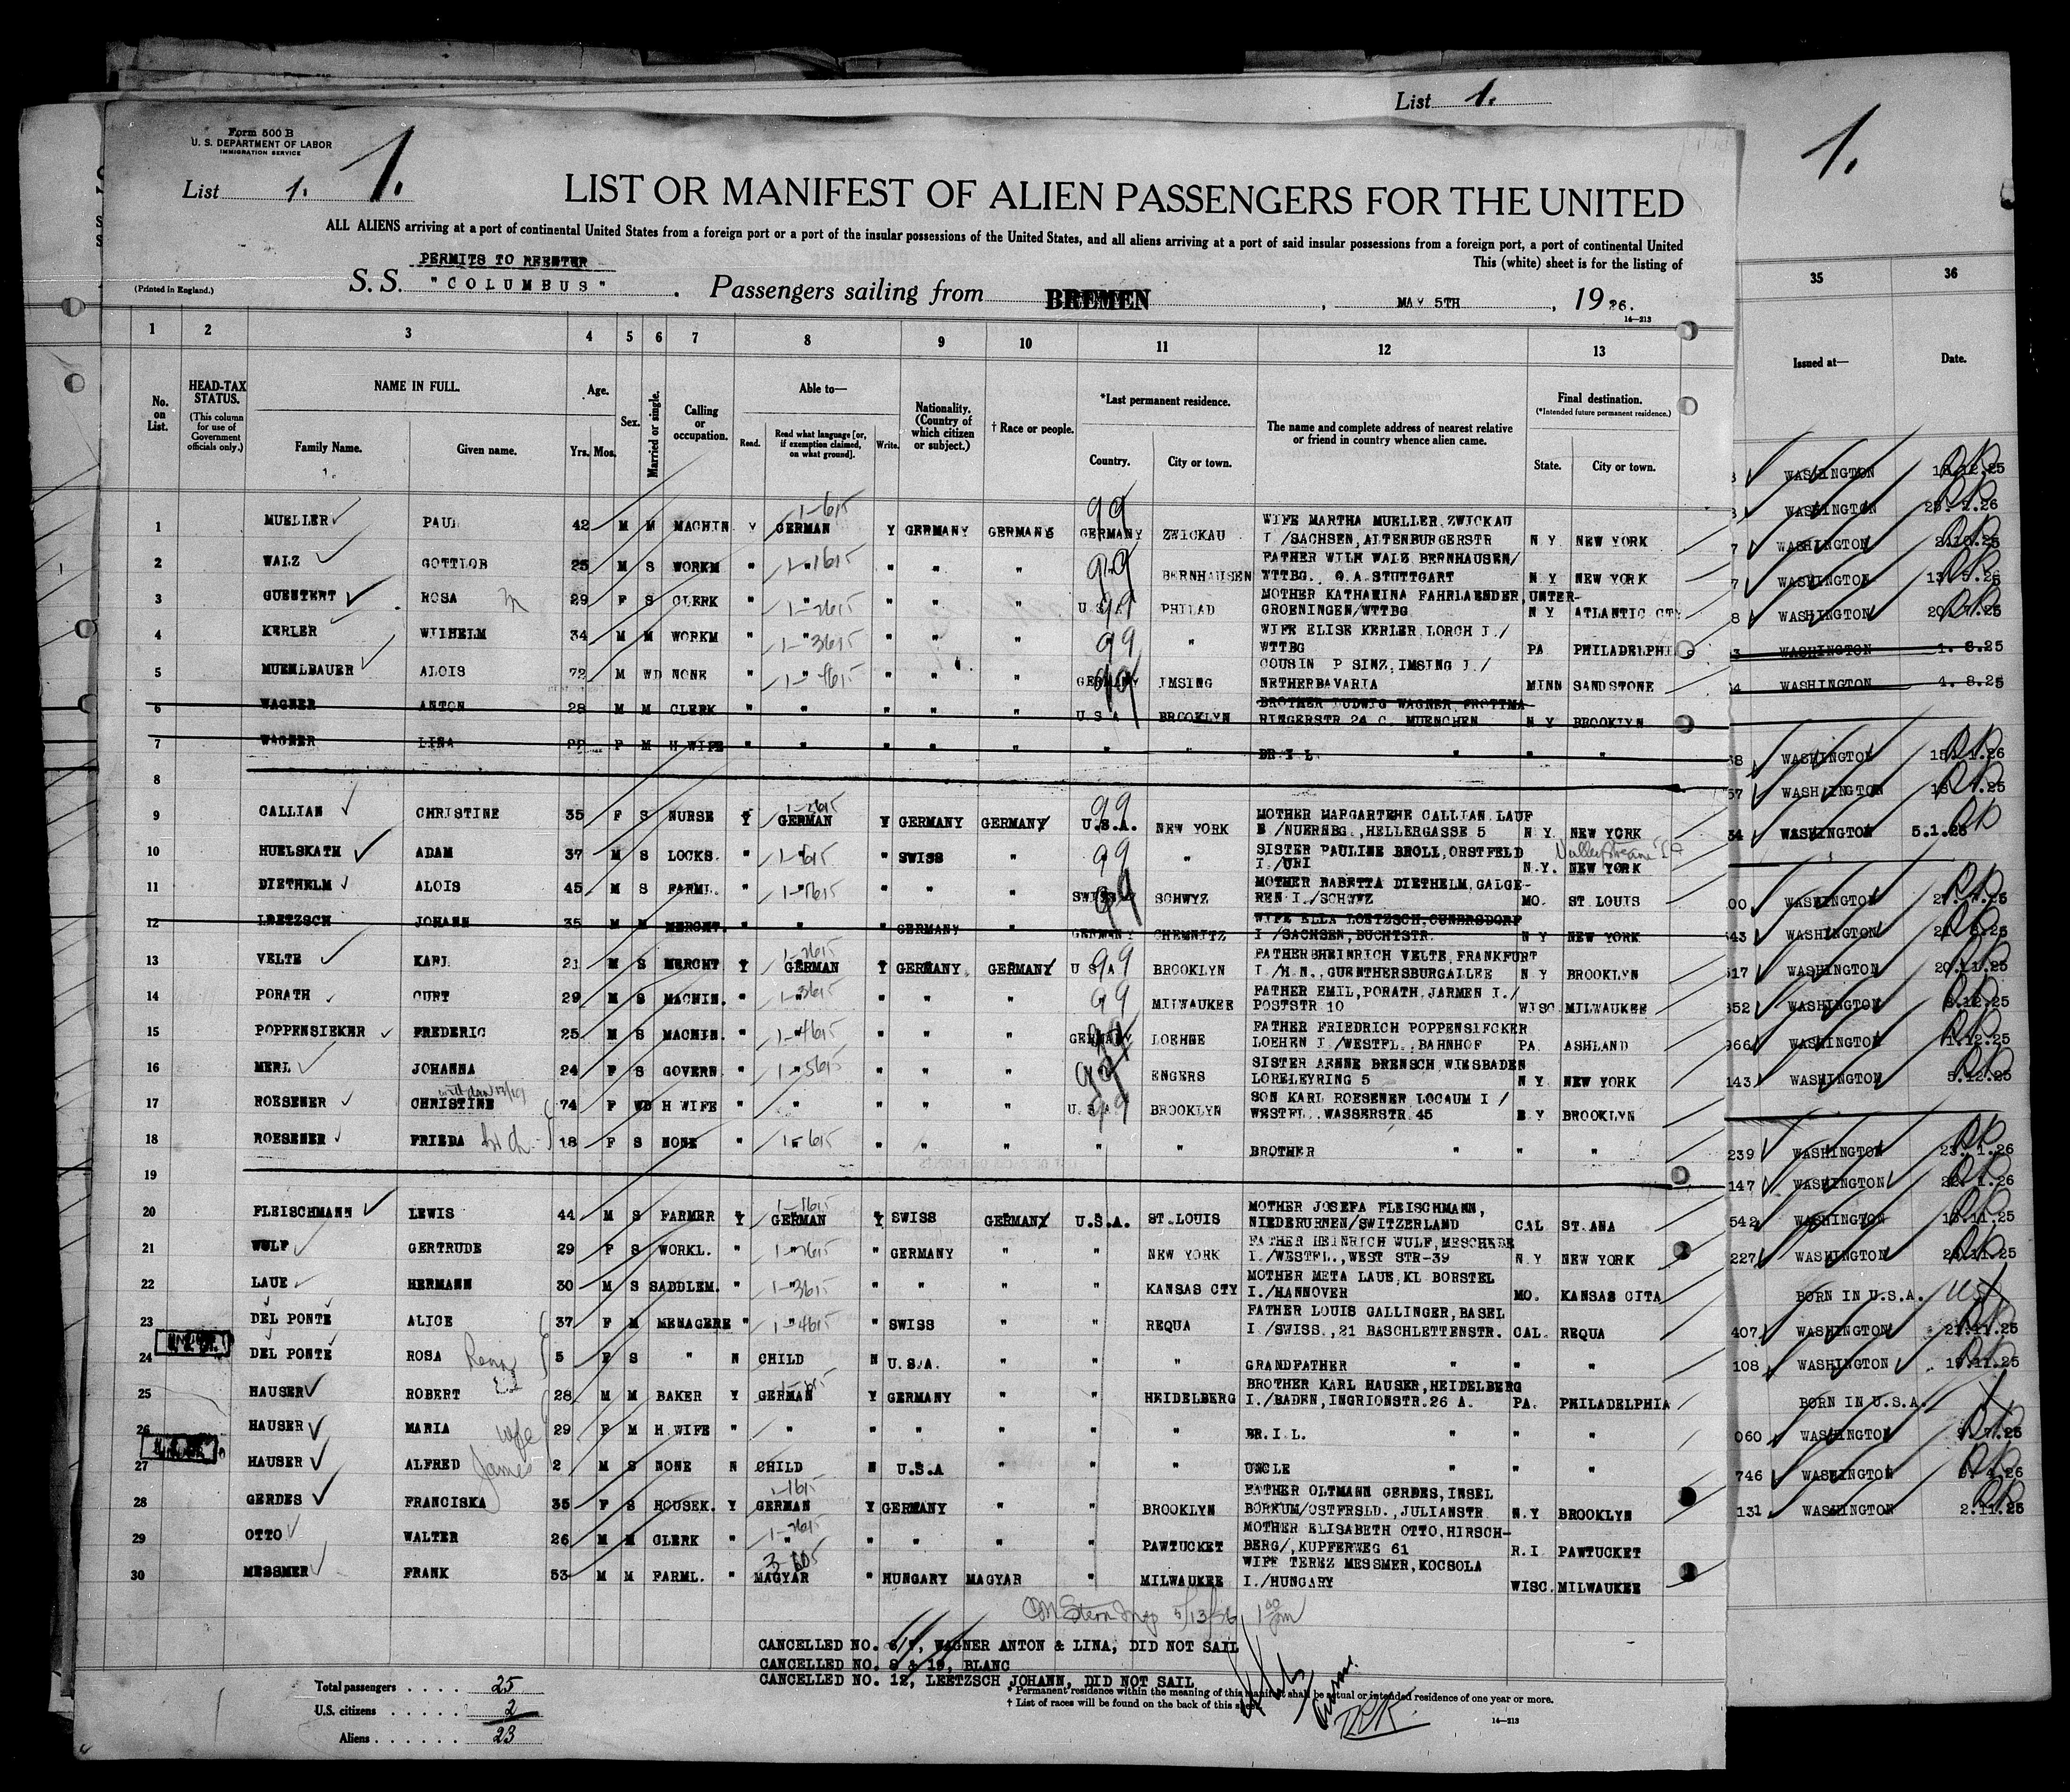 List 1.
1.
Form 500 B
U. S. DEPARTMENT OF LABOR
IMMIGRATION SERVICE
List 1. 1.
LIST OR MANIFEST OF ALIEN PASSENGERS FOR THE UNITED
ALL ALIENS arriving at a port of continental United States from a foreign port or a port of the insular possessions of the United States, and all aliens arriving at a port of said insular possessions from a foreign port, a port of continental United
This (white) sheet is for the listing of
PERMITS TO REENTER
(Printed in England.)
S. S. "COLUMBUS" . Passengers sailing from BREMEN , MAY 5TH , 1926.
14—213
1 2 3 4 5 6 7 8 9 10 11 12 13 35 36
No. on List.
HEAD-TAX STATUS.
(This column for use of Government officials only.)
NAME IN FULL.
Family Name. Given name.
Age.
Yrs. Mos.
Sex.
Married or single.
Calling or occupation.
Able to—
Read. Read what language [or, if exemption claimed, on what ground]. Write.
Nationality. (Country of which citizen or subject.)
† Race or people.
*Last permanent residence.
Country. City or town.
The name and complete address of nearest relative or friend in country whence alien came.
Final destination.
(*Intended future permanent residence.)
State. City or town.
Issued at— Date.
1 MUELLER PAUL 42 M M MACHIN Y GERMAN Y GERMANY GERMANY GERMANY ZWICKAU WIFE MARTHA MUELLER ZWICKAU
I./SACHSEN, ALTENBURGERSTR N Y NEW YORK
2 WALZ GOTTLOB 25 M S WORKM " " " " " BERNHAUSEN FATHER WILH WALZ BERNHAUSEN/
WTTBG., O.A.STUTTGART N Y NEW YORK
3 GUENTERT ROSA 29 F S CLERK " " " " " U.S.A. PHILAD MOTHER KATHARINA FAHRLAENDER, UNTER-
GROENINGEN/WTTBG N Y ATLANTIC CTY
4 KERLER WILHELM 34 M M WORKM " " " " " " WIFE ELISE KERLER LORCH I./
WTTBG PA PHILADELPHI
5 MUEHLBAUER ALOIS 72 M WD NONE " " " " " GERMANY IMSING COUSIN P SINZ, IMSING I./
NETHERBAVARIA MINN SANDSTONE
6 WAGNER ANTON 28 M M CLERK " " " " " U S A BROOKLYN BROTHER LUDWIG WAGNER, FROTTMA-
RINGERSTR 24 C. MUENCHEN N Y BROOKLYN
7 WAGNER LINA F M H WIFE " " " " " " " BR.I L " " "
8
9 CALLIAN CHRISTINE 35 F S NURSE Y GERMAN Y GERMANY GERMANY U.S.A. NEW YORK MOTHER MARGARTEHE CALLIAN LAUF
B /NUERNBG., HELLERGASSE 5 N Y. NEW YORK
10 HUELSKATH ADAM 37 M S LOCKS. " " " SWISS " " SISTER PAULINE BROLL, ORSTFELD
I./URI N.Y. NEW YORK
11 DIETHELM ALOIS 45 M S FARML. " " " " " SCHWYZ MOTHER BABETTA DIETHELM, GALGE-
REN I./SCHWYZ MO. ST LOUIS
12 LEETZSCH JOHANN 35 M M MERCHT. " " " GERMANY " GERMANY CHEMNITZ WIFE ELLA LOETZSCH, CUNERSDORF
I /SACHSEN, BUCHTSTR. N Y NEW YORK
13 VELTE KARL 21 M S MERCHT Y GERMAN Y GERMANY GERMANY U S A BROOKLYN FATHERSHEINRICH VELTE, FRANKFURT
I./M.N., GUENTHERSBURGALLEE N Y BROOKLYN
14 PORATH CURT 29 M S MACHIN. " " " " " MILWAUKEE FATHER EMIL, PORATH, JARMEN I./
POSTSTR 10 WISC. MILWAUKEE
15 POPPENSIEKER FREDERIC 25 M S MACHIN. " " " " " GERMANY LOEHNE FATHER FRIEDRICH POPPENSIFCKER
LOEHEN I /WESTFL., BAHNHOF PA. ASHLAND
16 MERL JOHANNA 24 F S GOVERN. " " " " " ENGERS SISTER AENNE BRENSCH WIESBADEN
LORELEYRING 5 N Y NEW YORK
17 ROESENER CHRISTINE 74 F WD H WIFE " " " " " U.S A BROOKLYN SON KARL ROESENER LOCAUM I /
WESTFL. WASSERSTR. 45 N Y BROOKLYN
18 ROESENER FRIEDA 18 F S NONE " " " " " " " BROTHER " " "
19
20 FLEISCHMANN LEWIS 44 M S FARMER Y GERMAN Y SWISS GERMANY U.S.A. ST.LOUIS MOTHER JOSEFA FLEISCHMANN,
NIEDERURNEN/SWITZERLAND CAL ST.ANA
21 WULF GERTRUDE 29 F S WORKL. " " " GERMANY " " NEW YORK FATHER HEINRICH WULF, MESCHEDE
I./WESTFL., WEST STR-39 N.Y NEW YORK
22 LAUE HERMANN 30 M S SADDLEM. " " " " " " KANSAS CTY MOTHER META LAUE, KL BORSTEL
I./HANNOVER MO. KANSAS CITA
23 DEL PONTE ALICE 37 F M MENAGERE " " " SWISS " " REQUA FATHER LOUIS GALLINGER, BASEL
I /SWISS., 21 BASCHLETTENSTR. CAL. REQUA
24 DEL PONTE ROSA 5 F S " N CHILD N U.S.A. " " " GRANDFATHER " " "
25 HAUSER ROBERT 28 M M BAKER Y GERMAN Y GERMANY " " HEIDELBERG BROTHER KARL HAUSER, HEIDELBERG
I./BADEN, INGRIONSTR.26 A. PA. PHILADELPHIA
26 HAUSER MARIA wife 29 F M H.WIFE " " " " " " " BR.I.L. " " "
27 HAUSER ALFRED James 2 M S NONE N CHILD N U.S.A " " " UNCLE " " "
28 GERDES FRANCISKA 35 F S HOUSEK. Y GERMAN Y GERMANY " " BROOKLYN FATHER OLTMANN GERDES, INSEL
BORKUM/OSTFRSLD., JULIANSTR N.Y BROOKLYN
29 OTTO WALTER 26 M M CLERK " " " " " " PAWTUCKET MOTHER ELISABETH OTTO, HIRSCH-
BERG/, KUPFERWEG 61 R.I. PAWTUCKET
30 MESSMER FRANK 53 M M FARML. " MAGYAR " HUNGARY MAGYAR " MILWAUKEE WIFE TEREZ MESSMER, KOCSOLA
I./HUNGARY WISC. MILWAUKEE
CANCELLED NO. 6/7, WAGNER ANTON & LINA, DID NOT SAIL
CANCELLED NO. 8 & 19, BLANC
CANCELLED NO. 12, LEETZSCH JOHANN, DID NOT SAIL
* Permanent residence within the meaning of this manifest shall be actual or intended residence of one year or more.
† List of races will be found on the back of this sheet.
14—213
Total passengers 25
U.S. citizens 2
Aliens 23
WASHINGTON
WASHINGTON
7 WASHINGTON
7 WASHINGTON
8 WASHINGTON
WASHINGTON 1. 8.25
WASHINGTON 4. 8.25
58 WASHINGTON
57 WASHINGTON
34 WASHINGTON
00 WASHINGTON
543 WASHINGTON
517 WASHINGTON
352 WASHINGTON
966 WASHINGTON
143 WASHINGTON 5.12.25
239 WASHINGTON
147 WASHINGTON
542 WASHINGTON
227 WASHINGTON
BORN IN U.S.A.
407 WASHINGTON
108 WASHINGTON
BORN IN U.S.A.
060 WASHINGTON
746 WASHINGTON
131 WASHINGTON 2.11.25